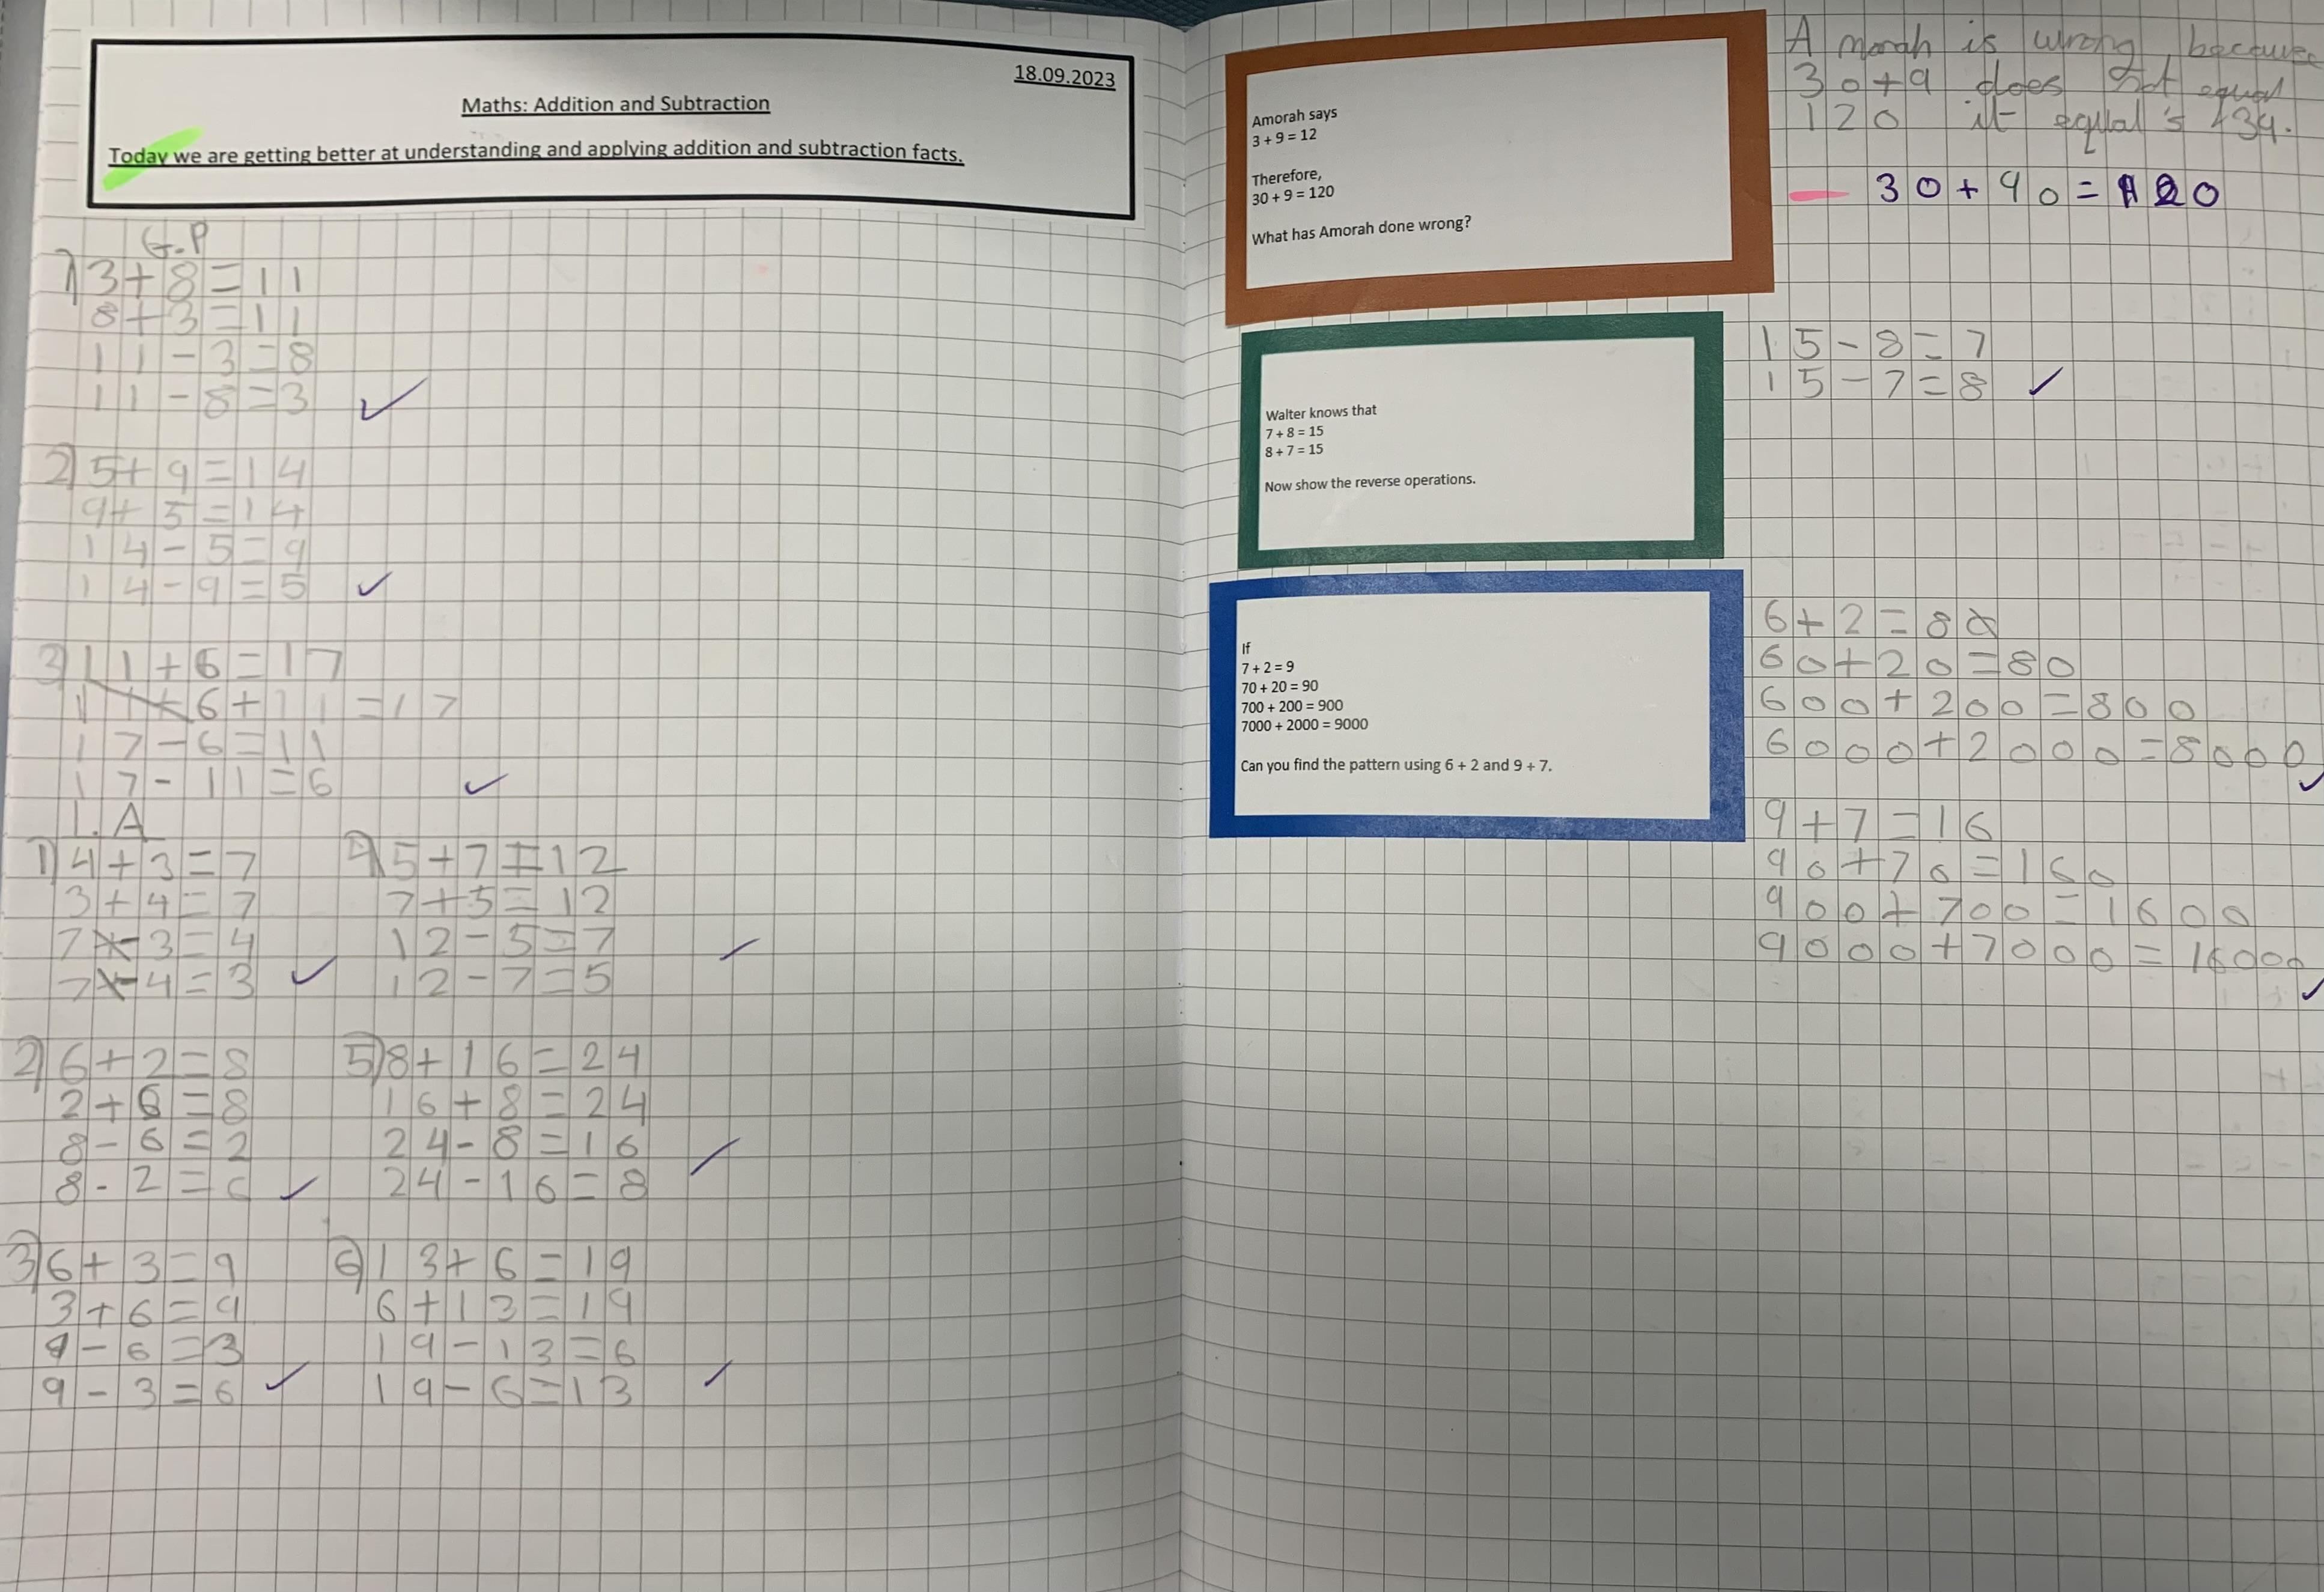 18.09.2023
Maths: Addition and Subtraction
Today we are getting better at understanding and applying addition and subtraction facts.
G.P
1) 3+8=11
8+3=11
11-3=8
11-8=3
2) 5+9=14
9+5=14
14-5=9
14-9=5
3) 11+6=17
6+11=17
17-6=11
17-11=6
I.A
1) 4+3=7
3+4=7
7-3=4
7-4=3
2) 6+2=8
2+6=8
8-6=2
8-2=6
3) 6+3=9
3+6=9
9-6=3
9-3=6
4) 5+7=12
7+5=12
12-5=7
12-7=5
5) 8+16=24
16+8=24
24-8=16
24-16=8
6) 13+6=19
6+13=19
19-13=6
19-6=13
Amorah says
3 + 9 = 12
Therefore,
30 + 9 = 120
What has Amorah done wrong?
Amorah is wrong because
30+9 does not equal
120 it equal's 39.
30+90=120
Walter knows that
7 + 8 = 15
8 + 7 = 15
Now show the reverse operations.
15-8=7
15-7=8
If
7 + 2 = 9
70 + 20 = 90
700 + 200 = 900
7000 + 2000 = 9000
Can you find the pattern using 6 + 2 and 9 + 7.
6+2=8
60+20=80
600+200=800
6000+2000=8000
9+7=16
90+70=160
900+700=1600
9000+7000=16000